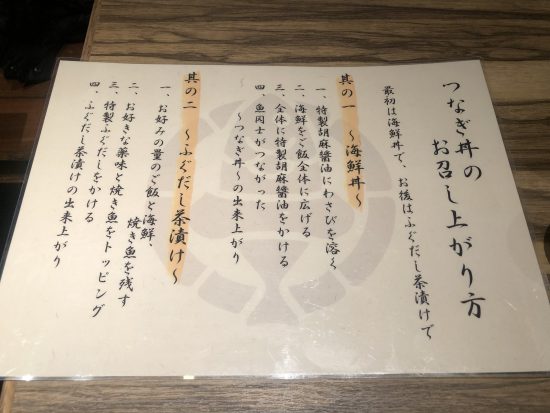 つなぎ丼の
お召し上がり方
最初は海鮮丼で、お後はふぐだし茶漬けで
其の一 ～海鮮丼～
一、特製胡麻醤油にわさびを溶く
二、海鮮をご飯全体に広げる
三、全体に特製胡麻醤油をかける
四、魚同士がつながった
～つなぎ丼～の出来上がり
其の二 ～ふぐだし茶漬け～
一、お好みの量のご飯と海鮮、
焼き魚を残す
二、お好きな薬味と焼き魚をトッピング
三、特製ふぐだしをかける
四、ふぐだし茶漬けの出来上がり